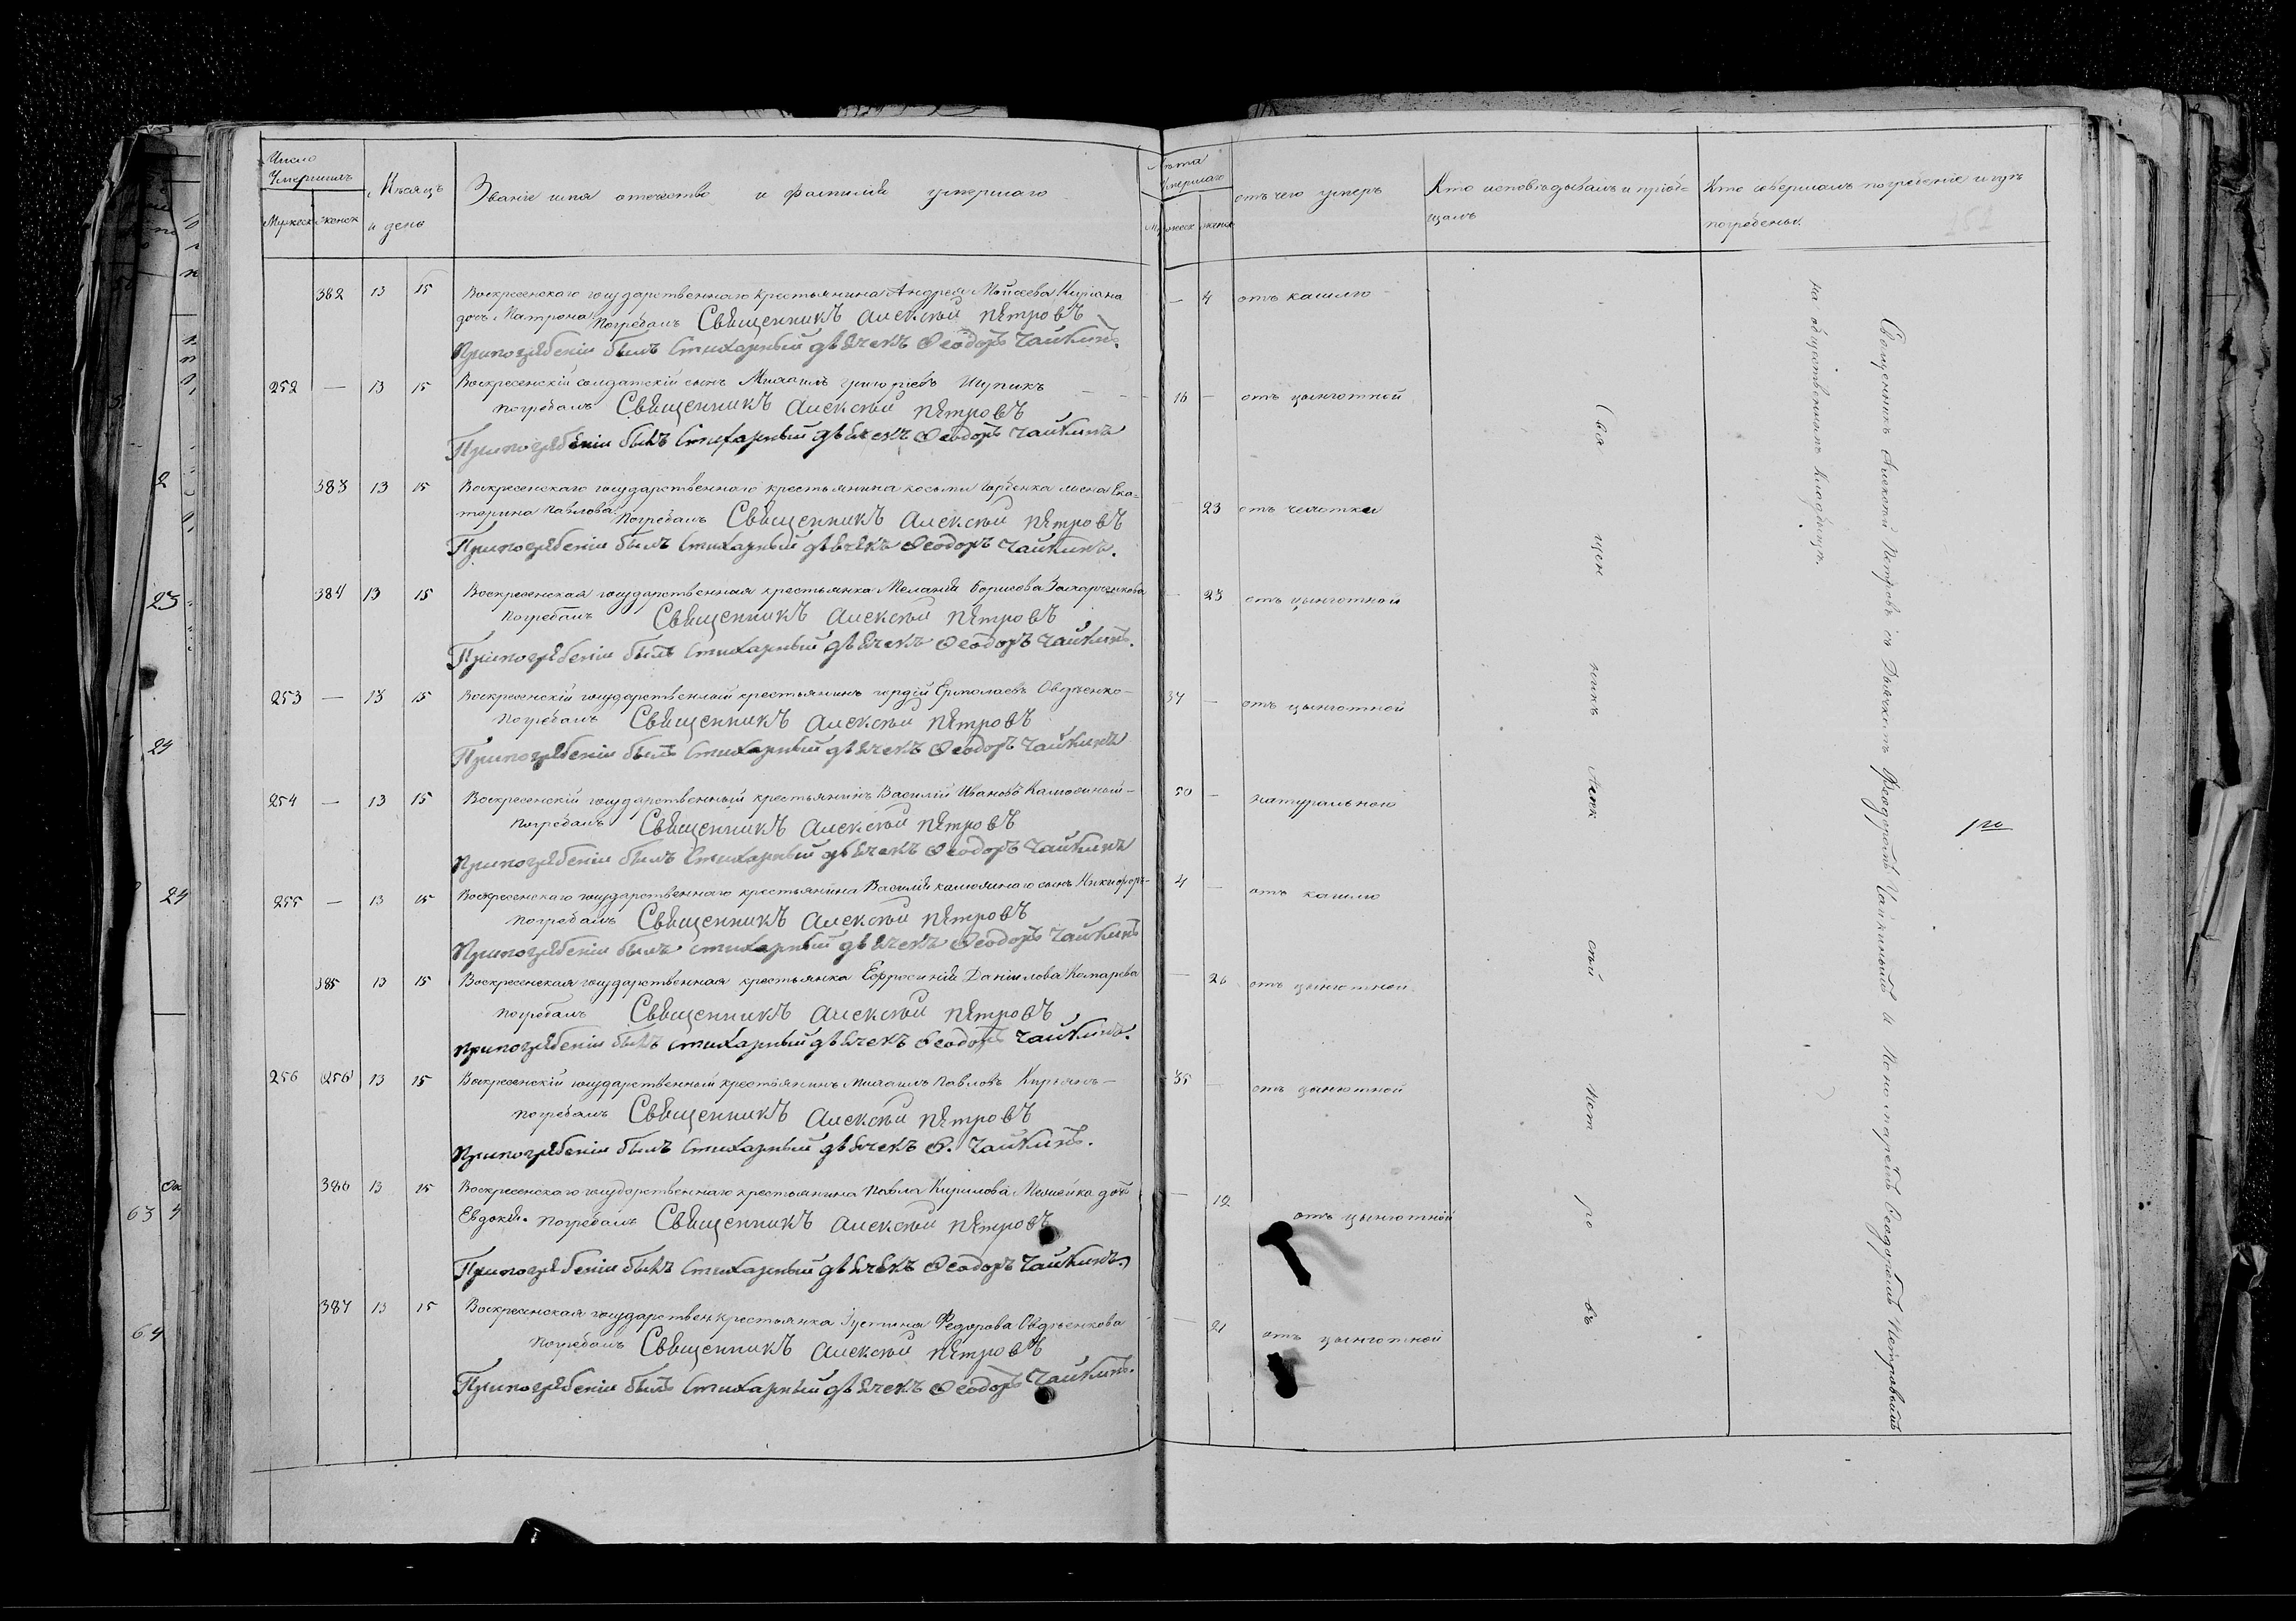 Число
Умершихъ
Мужеск
женск
Мѣсяцъ
и день
Званіе имя отчество и фамилія умершаго
Лѣта
Умершаго
Мужеск
женск
отъ чего умеръ
Кто исповѣдывалъ и пріоб-
щалъ
Кто совершалъ погребеніе и гдѣ
погребены
252
382 13 15 Воскресенскаго государственнаго крестьянина Андрея Мойсеева Кирiана — 4 отъ кашлю
дочь Матрона Погребалъ Священникъ Алексѣй Петровъ
Припогребеніи былъ Стихарный дьячекъ Ѳеодоръ Чайкинъ.
252 — 13 15 Воскресенскій солдатскій сынъ Михаилъ Григоріевъ 16 — отъ цынготной
Погребалъ Священникъ Алексѣй Петровъ
Припогребеніи былъ Стихарный дьячекъ Ѳеодоръ Чайкинъ
383 13 15 Воскресенскаго государственнаго крестьянина Косьмы Горбенка жена Ека- 23 отъ чахотки
терина Павлова Погребалъ Священникъ Алексѣй Петровъ
Припогребеніи былъ Стихарный дьячекъ Ѳеодоръ Чайкинъ.
384 13 15 Воскресенская государственная крестьянка Меланія Борисова Захарченкова 23 отъ цынготной
Погребалъ Священникъ Алексѣй Петровъ
Припогребеніи былъ Стихарный дьячекъ Ѳеодоръ Чайкинъ.
253 — 13 15 Воскресенскій государственный крестьянинъ Гордій Ермолаевъ Овдѣенко — 34 — отъ цынготной
Погребалъ Священникъ Алексѣй Петровъ
Припогребеніи былъ Стихарный дьячекъ Ѳеодоръ Чайкинъ
254 — 13 15 Воскресенскій государственный крестьянинъ Василій Ивановъ 50 — натуральною
Погребалъ Священникъ Алексѣй Петровъ
Припогребеніи былъ Стихарный дьячекъ Ѳеодоръ Чайкинъ
255 — 13 15 Воскресенскаго государственнаго крестьянина Василія сынъ Никифоръ — 4 — отъ кашлю
Погребалъ Священникъ Алексѣй Петровъ
Припогребеніи былъ стихарный дьячекъ Ѳеодоръ Чайкинъ
385 13 15 Воскресенская государственная крестьянка Ефросинія Даніилова Комарева — 26 отъ цынготной
Погребалъ Священникъ Алексѣй Петровъ
Припогребеніи былъ стихарный дьячекъ Ѳеодоръ Чайкинъ.
256 256 13 15 Воскресенскій государственный крестьянинъ Михаилъ Павловъ Кирьянъ — 35 отъ цынготной
Погребалъ Священникъ Алексѣй Петровъ
Припогребеніи былъ Стихарный дьячекъ Ѳ. Чайкинъ.
386 13 15 Воскресенскаго государственнаго крестьянина Павла Кирилова дочь — 12 отъ цынготной
Евдокія. Погребалъ Священникъ Алексѣй Петровъ
Припогребеніи былъ Стихарный дьячекъ Ѳеодоръ Чайкинъ.
387 13 15 Воскресенская государствен. крестьянка Іустина Федорова Овдѣенкова — 21 отъ цынготной
Погребалъ Священникъ Алексѣй Петровъ
Припогребеніи былъ Стихарный дьячекъ Ѳеодоръ Чайкинъ.
Священникъ Алексѣй Петровъ
Священникъ Алексѣй Петровъ съ Дьячкомъ Ѳеодоромъ Чайкинымъ и Пономаремъ Ѳеодоромъ Петровымъ
на общественномъ кладбищѣ.
2
23
24
24
63
4
64